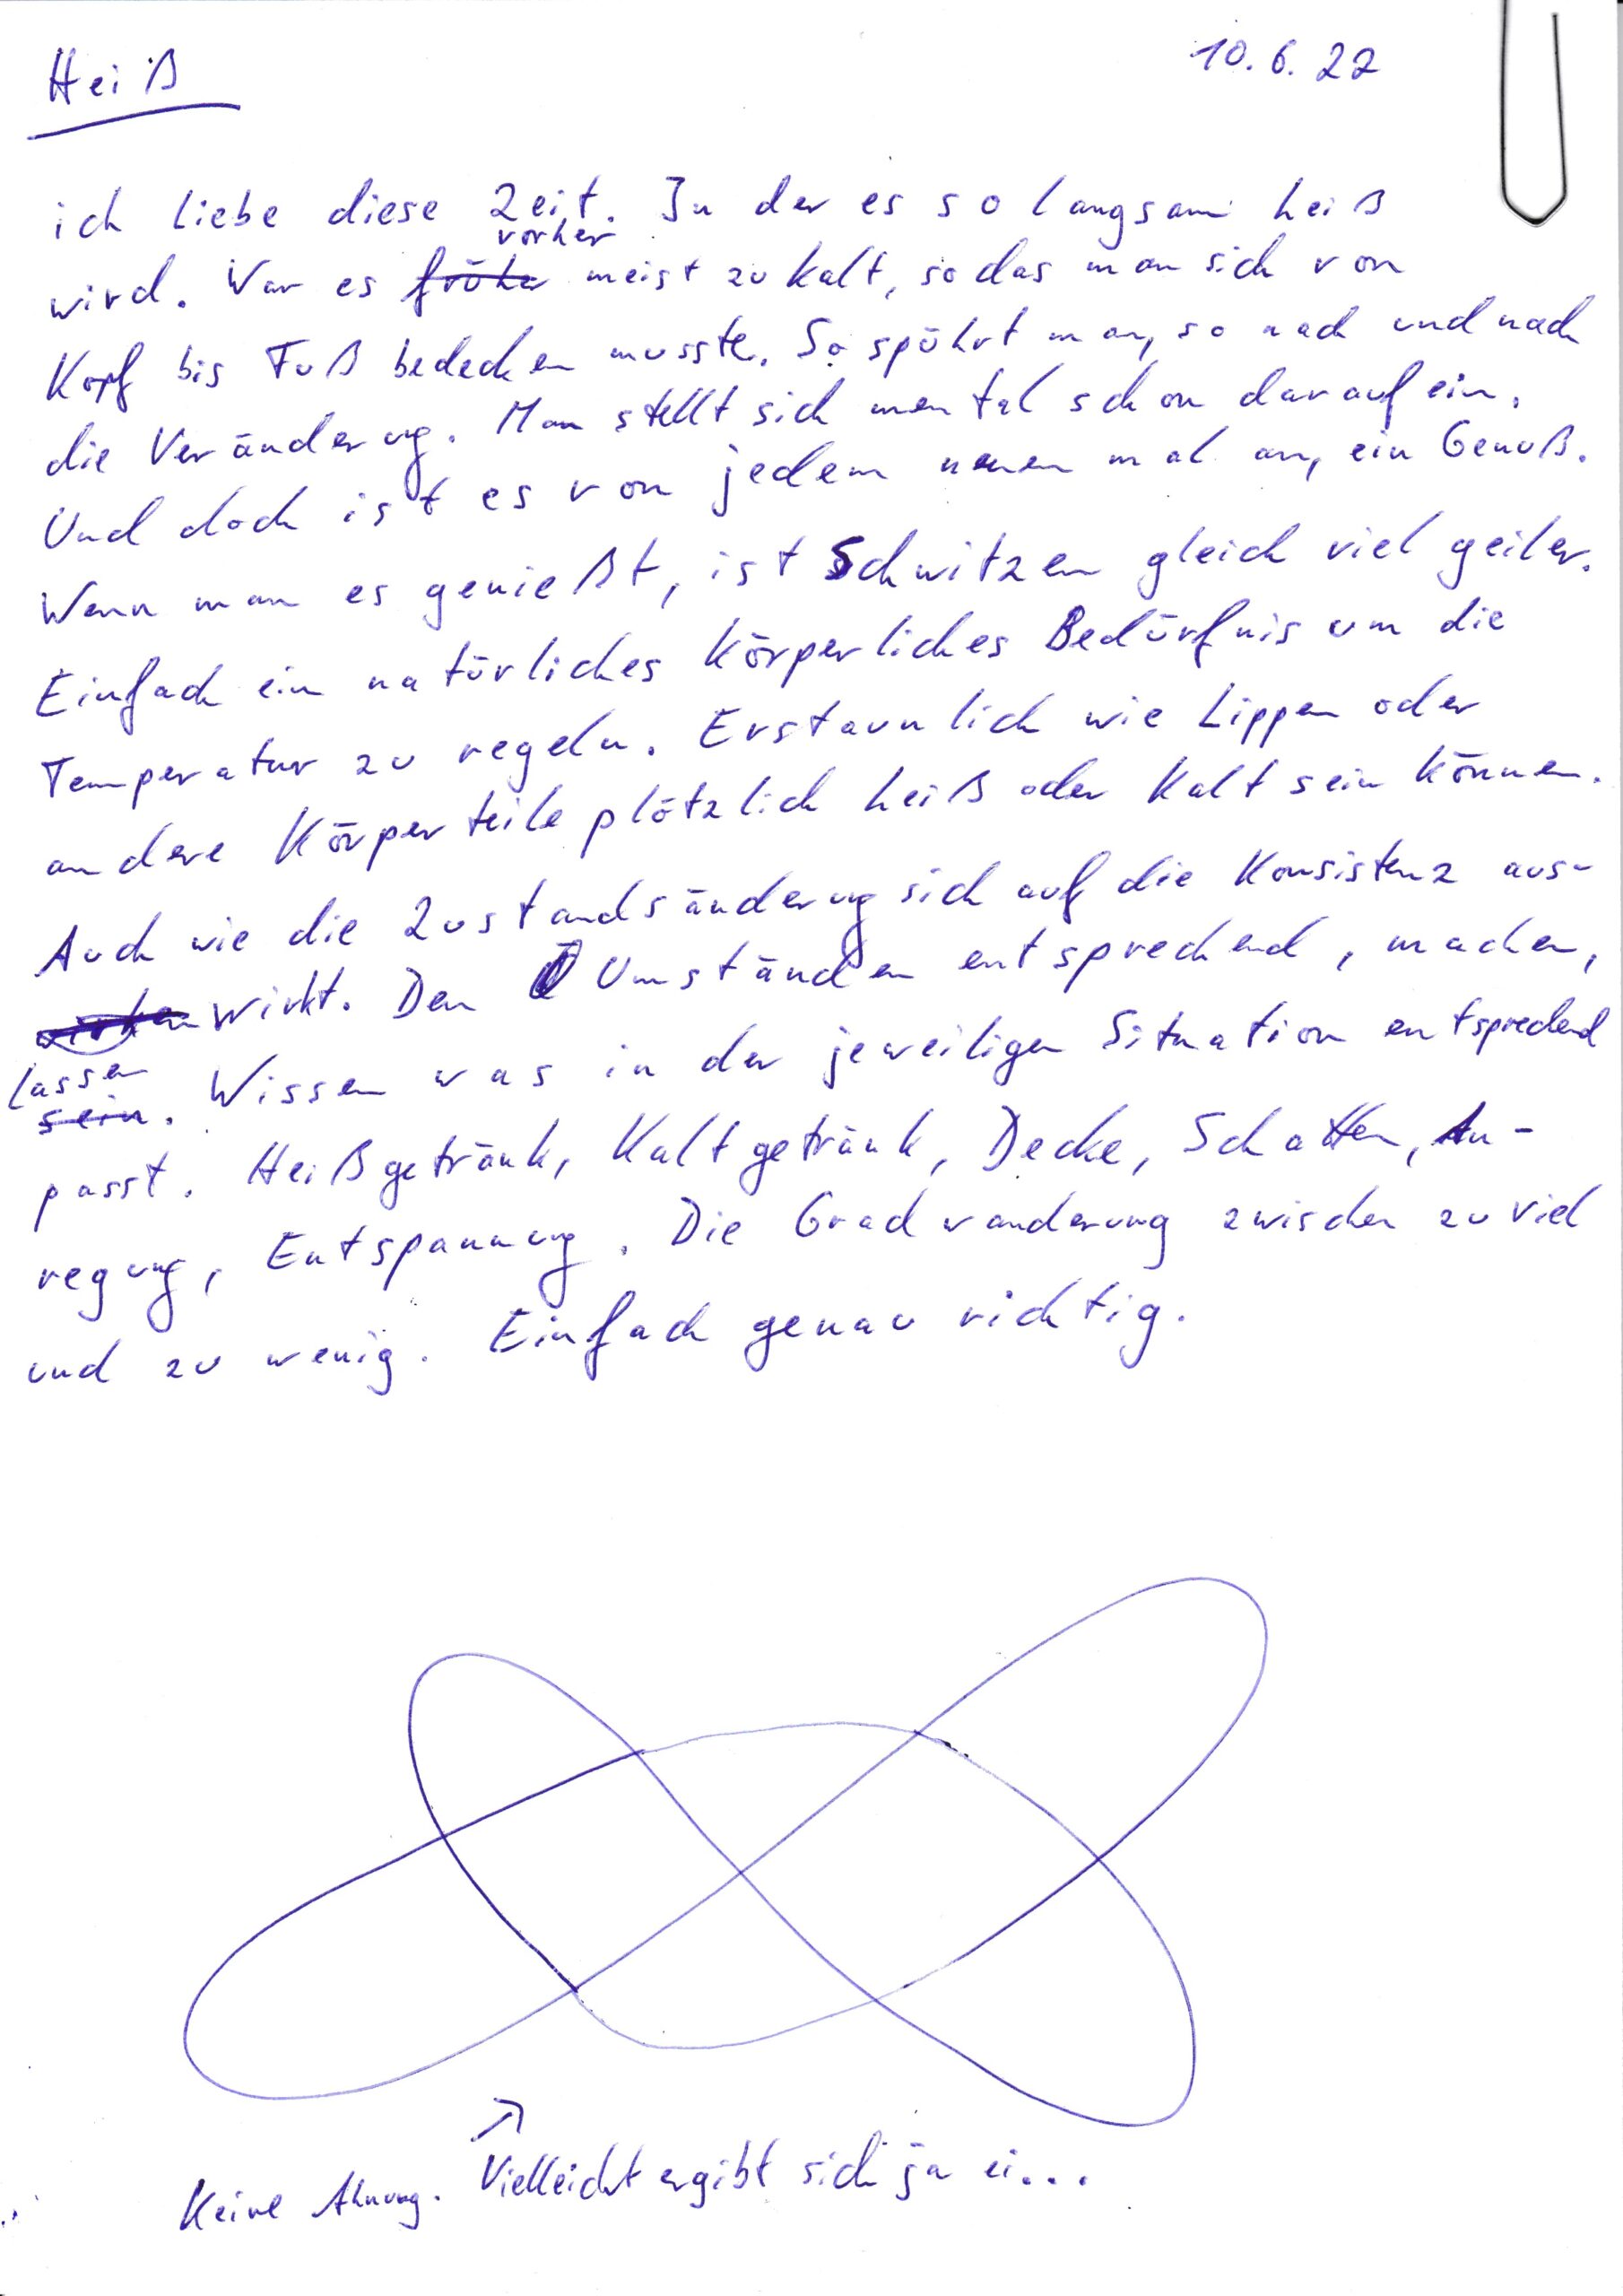 Heiß
10.6.22
ich liebe diese Zeit. In der es so langsam heiß
vorher
wird. War es früher meist zu kalt, sodas man sich von
Kopf bis Fuß bedecken musste. So spührt man, so nach und nach
die Veränderung. Man stellt sich mental schon darauf ein.
Und doch ist es von jedem neuen mal an, ein Genuß.
Wenn man es genießt, ist Schwitzen gleich viel geiler.
Einfach ein natürliches körperliches Bedürfnis um die
Temperatur zu regeln. Erstaunlich wie Lippen oder
andere Körperteile plötzlich heiß oder kalt sein können.
Auch wie die Zustandsänderung sich auf die Konsistenz aus-
wirken wirkt. Den Umständen entsprechend, machen,
lassen
sein. Wissen was in der jeweiligen Situation entsprechend
passt. Heißgetränk, Kaltgetränk, Decke, Schatten, An-
regung, Entspannung. Die Gradwanderung zwischen zu viel
und zu wenig. Einfach genau richtig.
Keine Ahnung. Vielleicht ergibt sich ja ei...